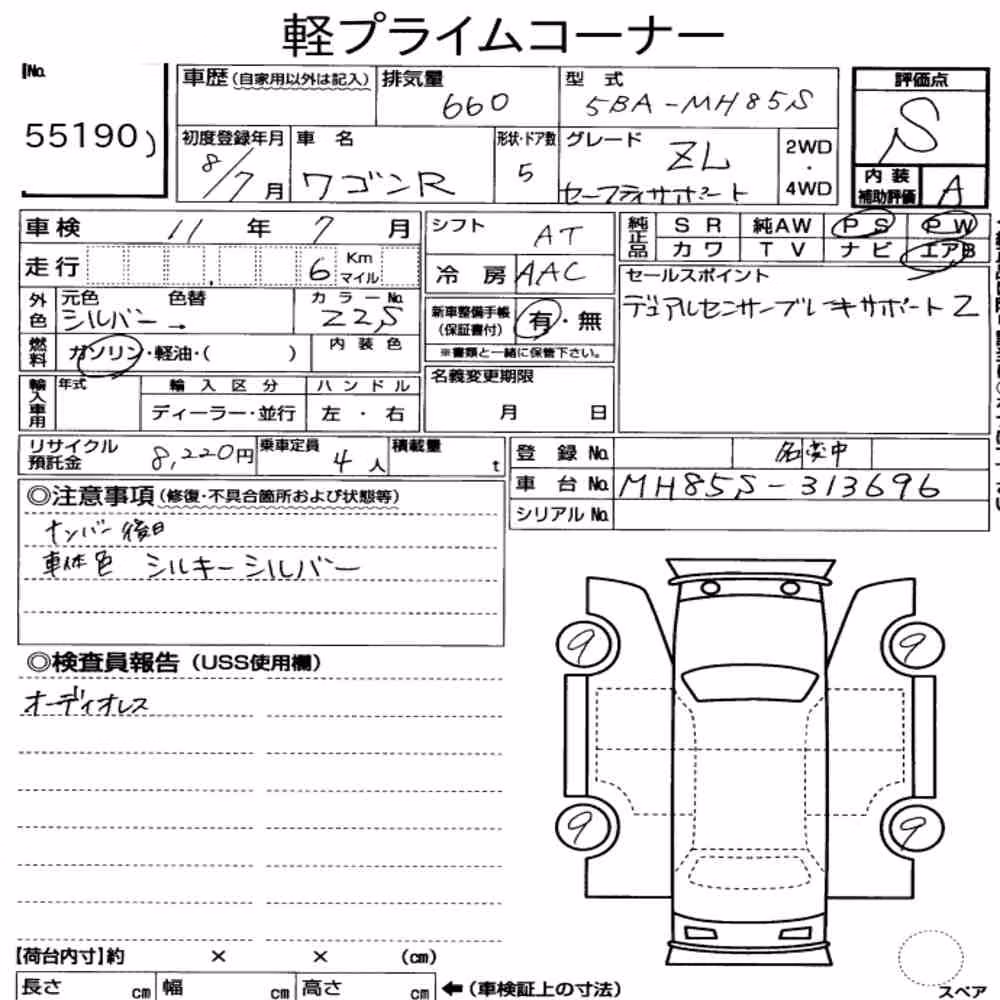 軽プライムコーナー
No.
55190
車歴(自家用以外は記入)
排気量
660
型式
5BA-MH85S
評価点
S
初度登録年月
8/7月
車名
ワゴンR
形状・ドア数
5
グレード
ZL
セーフティサポート
2WD
・
4WD
内装
補助評価
A
車検 11年 7月
シフト AT
純正品
SR 純AW PS PW
カワ TV ナビ エアB
走行 6 Km
マイル
冷房 AAC
セールスポイント
デュアルセンサーブレーキサポート2
外色
元色 色替
シルバー →
カラーNo.
Z2S
新車整備手帳
(保証書付)
有・無
※書類と一緒に保管下さい。
燃料
ガソリン・軽油・( )
内装色
名義変更期限
月 日
輸入車用
年式
輸入区分
ハンドル
ディーラー・並行
左・右
リサイクル
預託金
8,220円
乗車定員
4人
積載量
t
登録No.
車台No. MH85S-313696
シリアルNo.
◎注意事項(修復・不具合箇所および状態等)
ナンバー後日
車体色 シルキーシルバー
◎検査員報告(USS使用欄)
オーディオレス
9 9
9 9
【荷台内寸】約 × × (cm)
長さ cm 幅 cm 高さ cm ←(車検証上の寸法)
スペア